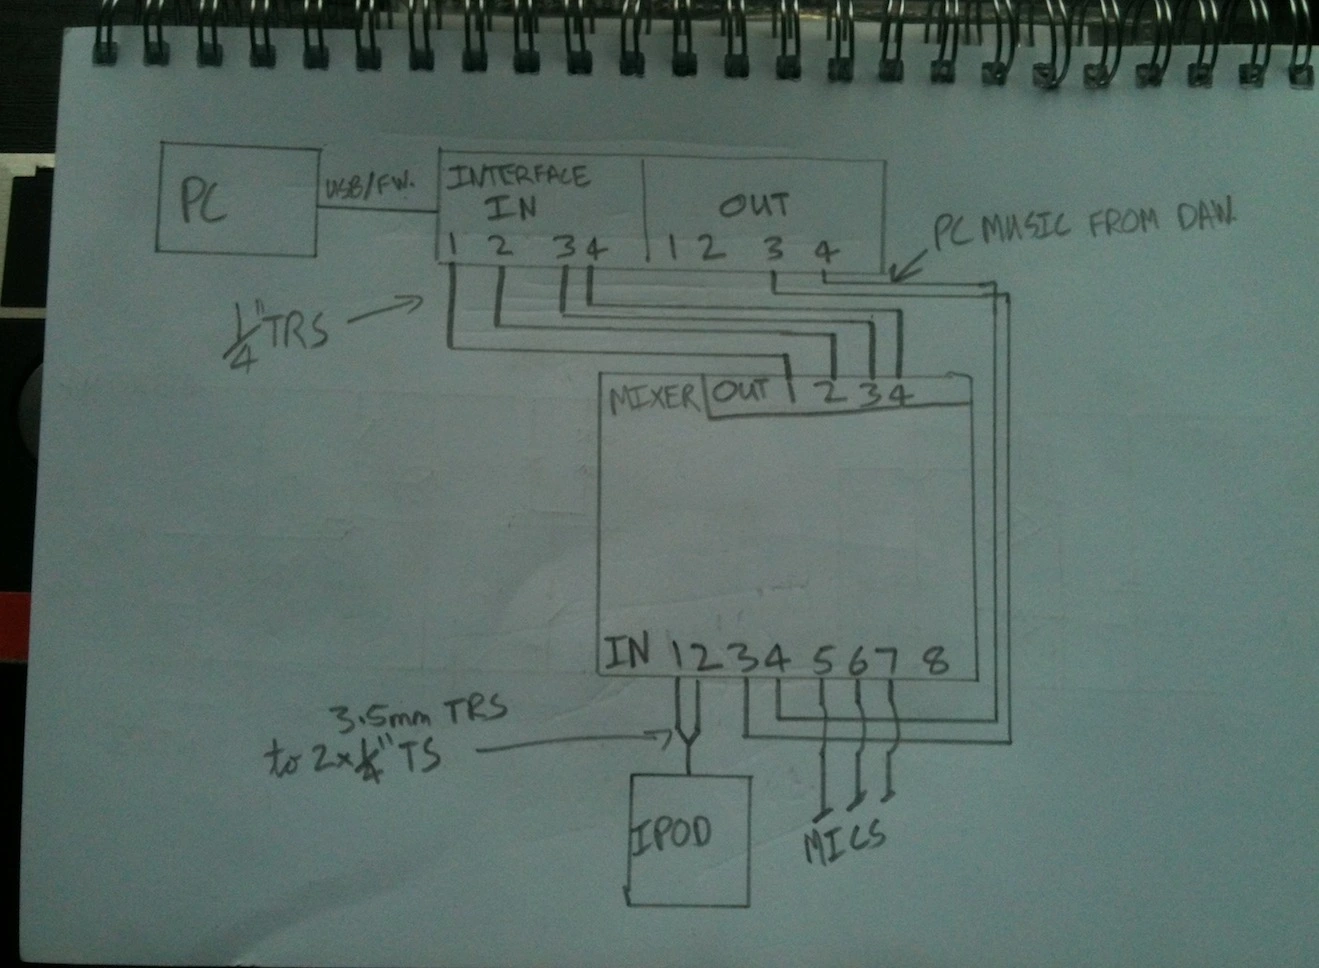 PC
USB/FW.
INTERFACE
IN
1 2 3 4
OUT
1 2 3 4
PC MUSIC FROM DAW.
1/4" TRS
MIXER
OUT 1 2 3 4
IN 1 2 3 4 5 6 7 8
3.5mm TRS
to 2x1/4" TS
IPOD
MICS